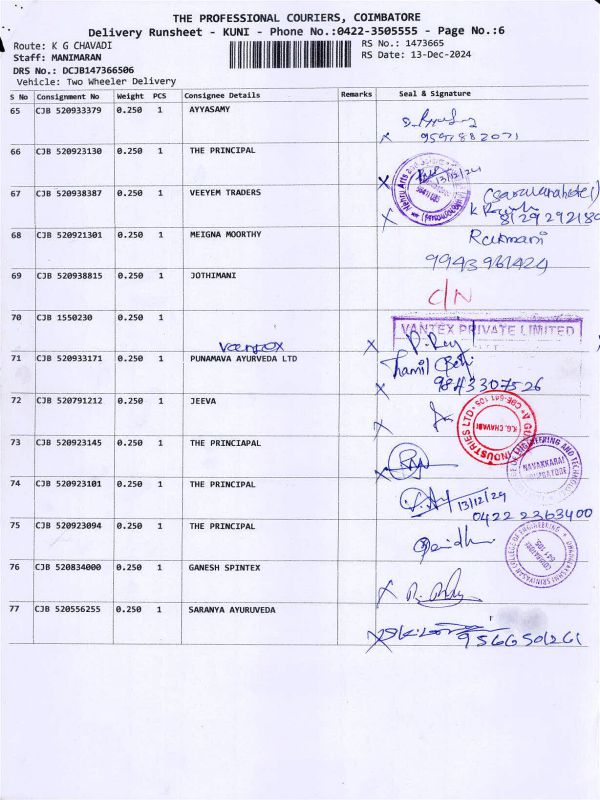 THE PROFESSIONAL COURIERS, COIMBATORE
Delivery Runsheet - KUNI - Phone No.:0422-3505555 - Page No.:6
Route: K G CHAVADI RS No.: 1473665
Staff: MANIMARAN RS Date: 13-Dec-2024
DRS No.: DCJB147366506
Vehicle: Two Wheeler Delivery
S No Consignment No Weight PCS Consignee Details Remarks Seal & Signature
65 CJB 520933379 0.250 1 AYYASAMY
66 CJB 520923130 0.250 1 THE PRINCIPAL
13/12/24
67 CJB 520938387 0.250 1 VEEYEM TRADERS
68 CJB 520921301 0.250 1 MEIGNA MOORTHY Rukmani
9943961424
69 CJB 520938815 0.250 1 JOTHIMANI C/N
70 CJB 1550230 0.250 1 VANTEX PRIVATE LIMITED
vantex
71 CJB 520933171 0.250 1 PUNAMAVA AYURVEDA LTD
9843307526
72 CJB 520791212 0.250 1 JEEVA
K.G. CHAVADI
INDUSTRIES LTD
73 CJB 520923145 0.250 1 THE PRINCIAPAL
NAVAKKARAI
COIMBATORE
74 CJB 520923101 0.250 1 THE PRINCIPAL
13/12/24
0422 2363400
75 CJB 520923094 0.250 1 THE PRINCIPAL
DHANALAKSHMI SRINIVASAN COLLEGE OF ENGINEERING
COIMBATORE
641 105
76 CJB 520834000 0.250 1 GANESH SPINTEX
77 CJB 520556255 0.250 1 SARANYA AYURUVEDA
9566501261